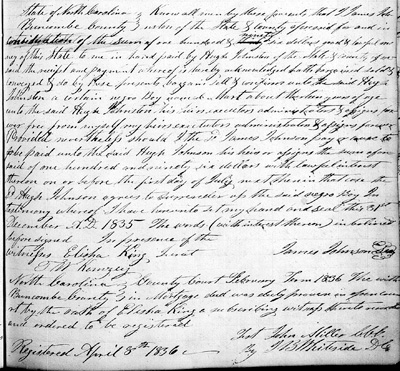 State of North Carolina } Know all men by these presents that I James John
Buncombe County } ston of the State & County aforesaid for and in
consideration of the sum of one hundred & ninety six dollars good & lawful mo
ney of this State to me in hand paid by Hugh Johnston of the State & County afore
said the receipt and payment whereof is hereby acknowledged hath bargained sold &
conveyed & do by these presents bargain sell & convey unto the said Hugh
Johnston a certain negro boy named
unto the said Hugh Johnston his heirs executors administrators & assigns for
ever free from myself my heirs executors administrators & assigns forever
Provided nevertheless should I the sd James Johnston pay or cause to
be paid unto the said Hugh Johnston his heirs or assigns the above
sum of one hundred and ninety six dollars with lawful interest
thereon on or before the first day of July next then in that case the
sd Hugh Johnston agrees to surrender up the said negro boy In
testimony whereof I have hereunto set my hand and seal this 31st
December A.D. 1835 The words (with interest thereon) interlined
before signed In presence of the
Witness Elisha King Jurat James Johnston
North Carolina } County Court February Term 1836 The within
Buncombe County } Mortgage deed was duly proven in open court
by the oath of Elisha King a subscribing witness thereto
and ordered to be registered
Test John Miller Clk
Registered April 8th 1836 By J B Whitside D.C.